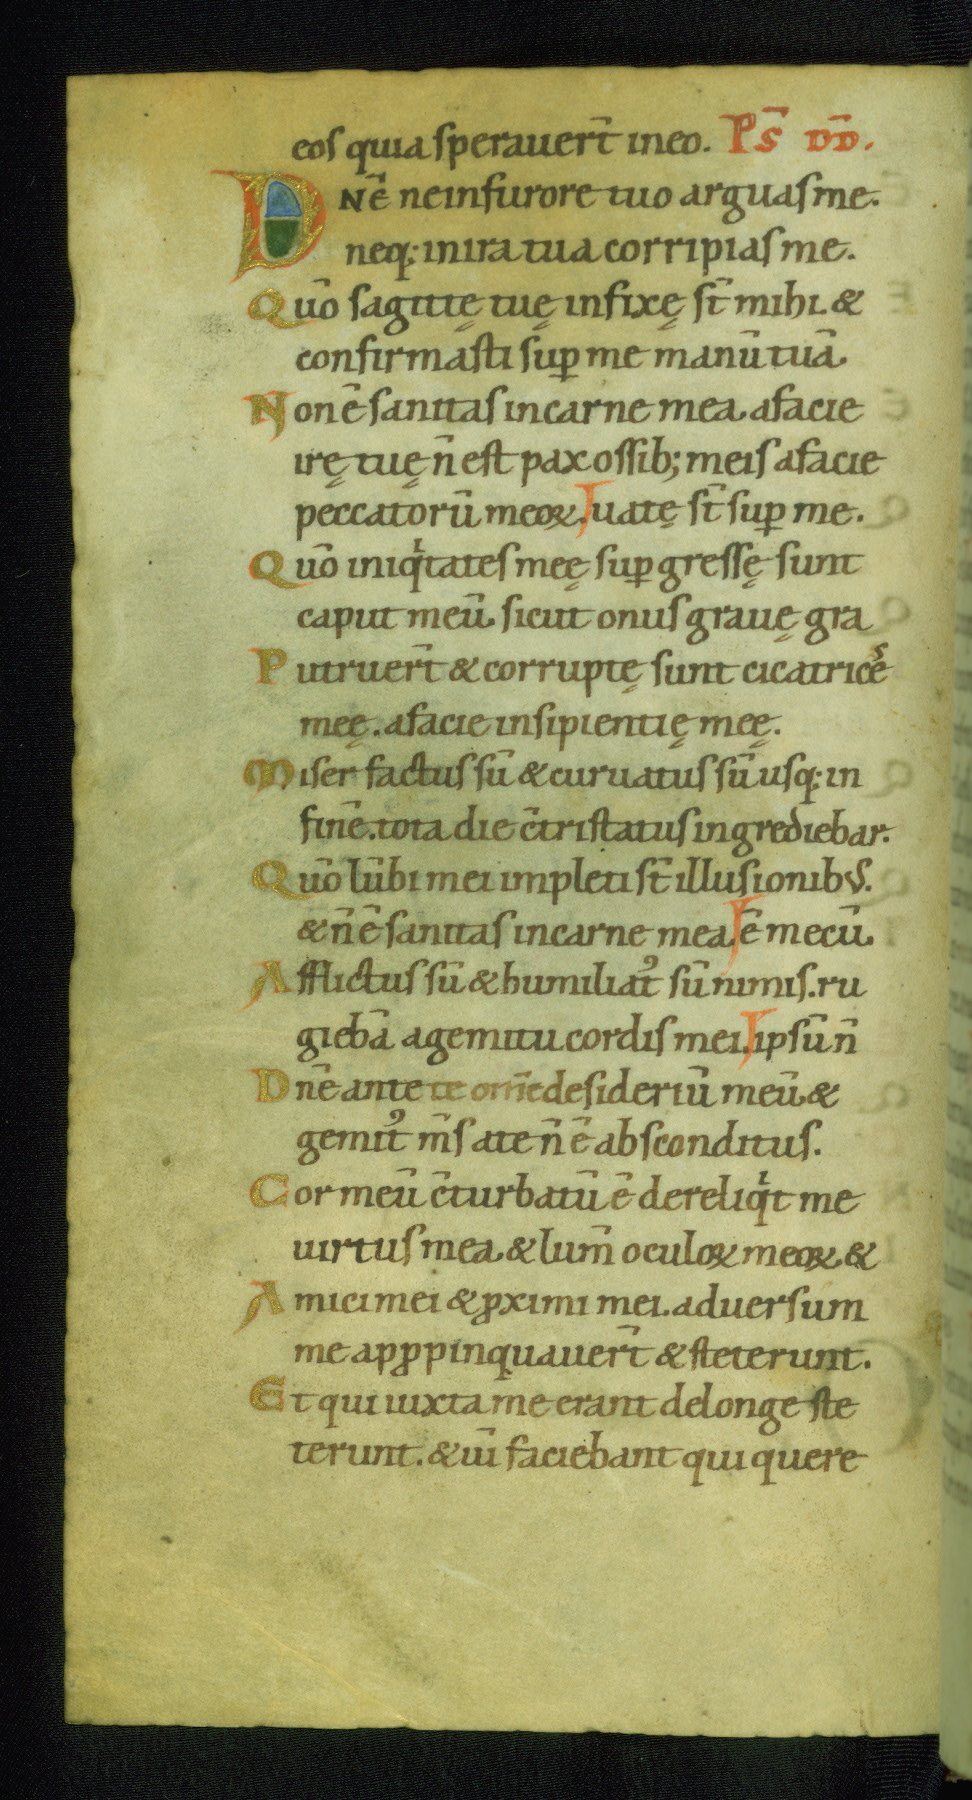 eos quia sperauer̄t in eo. PS̄ DD̄.
DNē ne in furore tuo arguas me.
neq; in ira tua corripias me.
Qūo sagittę tuę infixę st̄ mihi. &
confirmasti suꝑ me manū tuā
Non ē sanitas in carne mea. a facie
irę tuę n̄ est pax ossib; meis a facie
peccatorū meoꝝ. uatę st̄ suꝑ me.
Qūo iniqͥtates meę suꝑgressę sunt
caput meū. sicut onus grauę gra
Putruer̄t & corruptę sunt cicatrices
meę. a facie insipientię meę.
Miser factus sū & curuatus sū usq; in
finē. tota die c̄tristatus ingrediebar.
Qūo lūbi mei impleti st̄ illusionibus.
& n̄ ē sanitas in carne mea ē mecū
Afflictus sū & humiliat᾿ sū nimis. ru
giebā a gemitu cordis mei. ipsū n̄
Dnē ante te om̄e desideriū meū. &
gemit᾿ m̄s a te n̄ ē absconditus.
Cor meū c̄turbatū ē dereliqͥt me
uirtus mea. & lum̄ oculoꝝ meoꝝ. &
Amici mei & ꝓximi mei. aduersum
me apꝓpinquauer̄t & steterunt.
Et qui iuxta me erant de longe ste
terunt. & uī faciebant qui quere